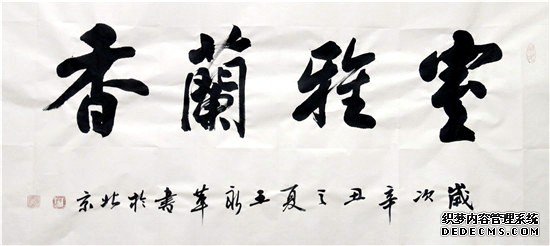 室雅蘭香
歲次辛丑之夏王永華書於北京
织梦内容管理系统
DEDECMS.COM